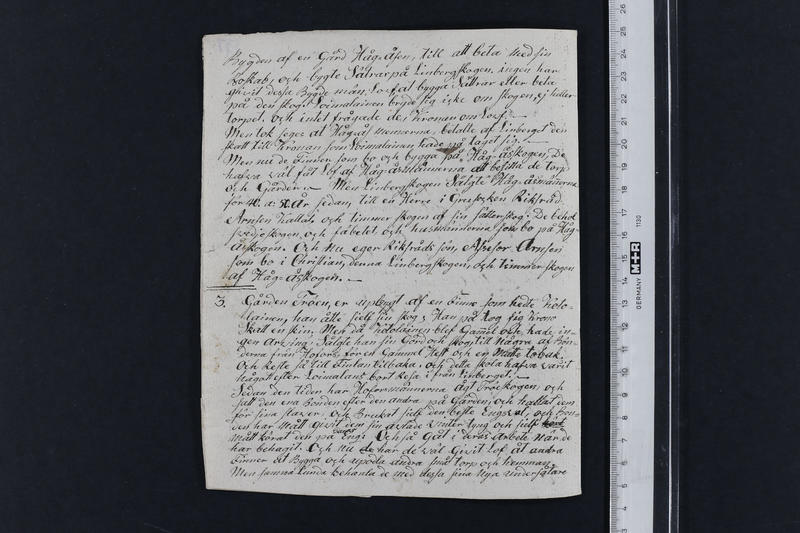 Bygden af en Gård Håg-åsen, till att beta med sin
Boskab, och bygte Sätrar på Linbergskogen. ingen har
givit dessa Bygde män, Lof at bygga Sättrar eller beta
på den skog. Loimalainen brÿde sig icke om skogen, ej heller
torpet. och intet frågade des Kronan om Lof.
Men tok seger at Håg-ås mennerna, betalte af Linberget den
skatt till Kronan som Loimalainen hade på taget sig.
Men nu de Finner som bo och bygga på Håg-åsskogen, De
hafva väl fåt Lof af Håg-åsmännerna att besitta de torp
och Gårder. Men Linbergskogen Sålgte Håg-åsmännerna
för 40. a: 50. år sedan, till en Herre i Gruesocken Riksråd
Arnsen Kallat, och timmer skogen af sin sätterskog. De behöl
svedieskogen, och fäbetet och husmännerna som bo på Håg-
åsskogen. Och Nu eger Riksråds son, Assesor Arnsen
som bo i Christian, denna Linbergskogen, och timmerskogen
af Håg-åsskogen.
3. Gården Tröen, er uptagt af en Finne som hette Hoto-
lainen, han åtte sielf sin skog; Han på tog sig Krono
Skatt en skin. Men då Hotolainen blef Gamel och hade in-
gen arving, Sålgte han sin Gård och skog, till Några af Bön-
derna från Hofors, för en Gammel Hest och en Matte tobak.
Och Reste så till Finlan tilbaka, och detta skola hafva varit
Något efter Loimalans bort Resa ifrån Linberget.
Sedan den tiden har Hoforsmännerna Ått Tröeskogen, och
satt den ena Bonden efter den andra på Gården, och hallat dem
för sina slaver, och Brukat sielf den beste Engsval, och Bon-
den har mått givit dem sin avlade vinter lyng och sielf
mått körat den på Engs. Och så Gåt i deras arbete når de
har behagit. Och Nu har de väl Givit Lof åt andra
Finner at Bygga och uprödla andra små torp och Hemman
Men samma Lunda Behanla de med dessa sina Nya undersåtare